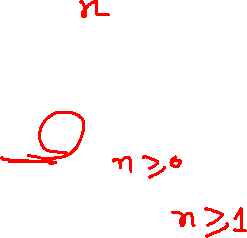 n
n ≥ 0
n ≥ 1